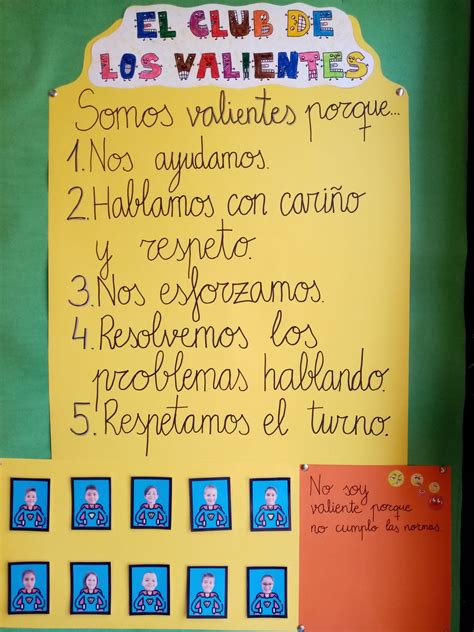 EL CLUB DE
LOS VALIENTES
Somos valientes porque...
1. Nos ayudamos.
2. Hablamos con cariño
y respeto.
3. Nos esforzamos.
4. Resolvemos los
problemas hablando.
5. Respetamos el turno.
No soy
valiente porque
no cumplo las normas.